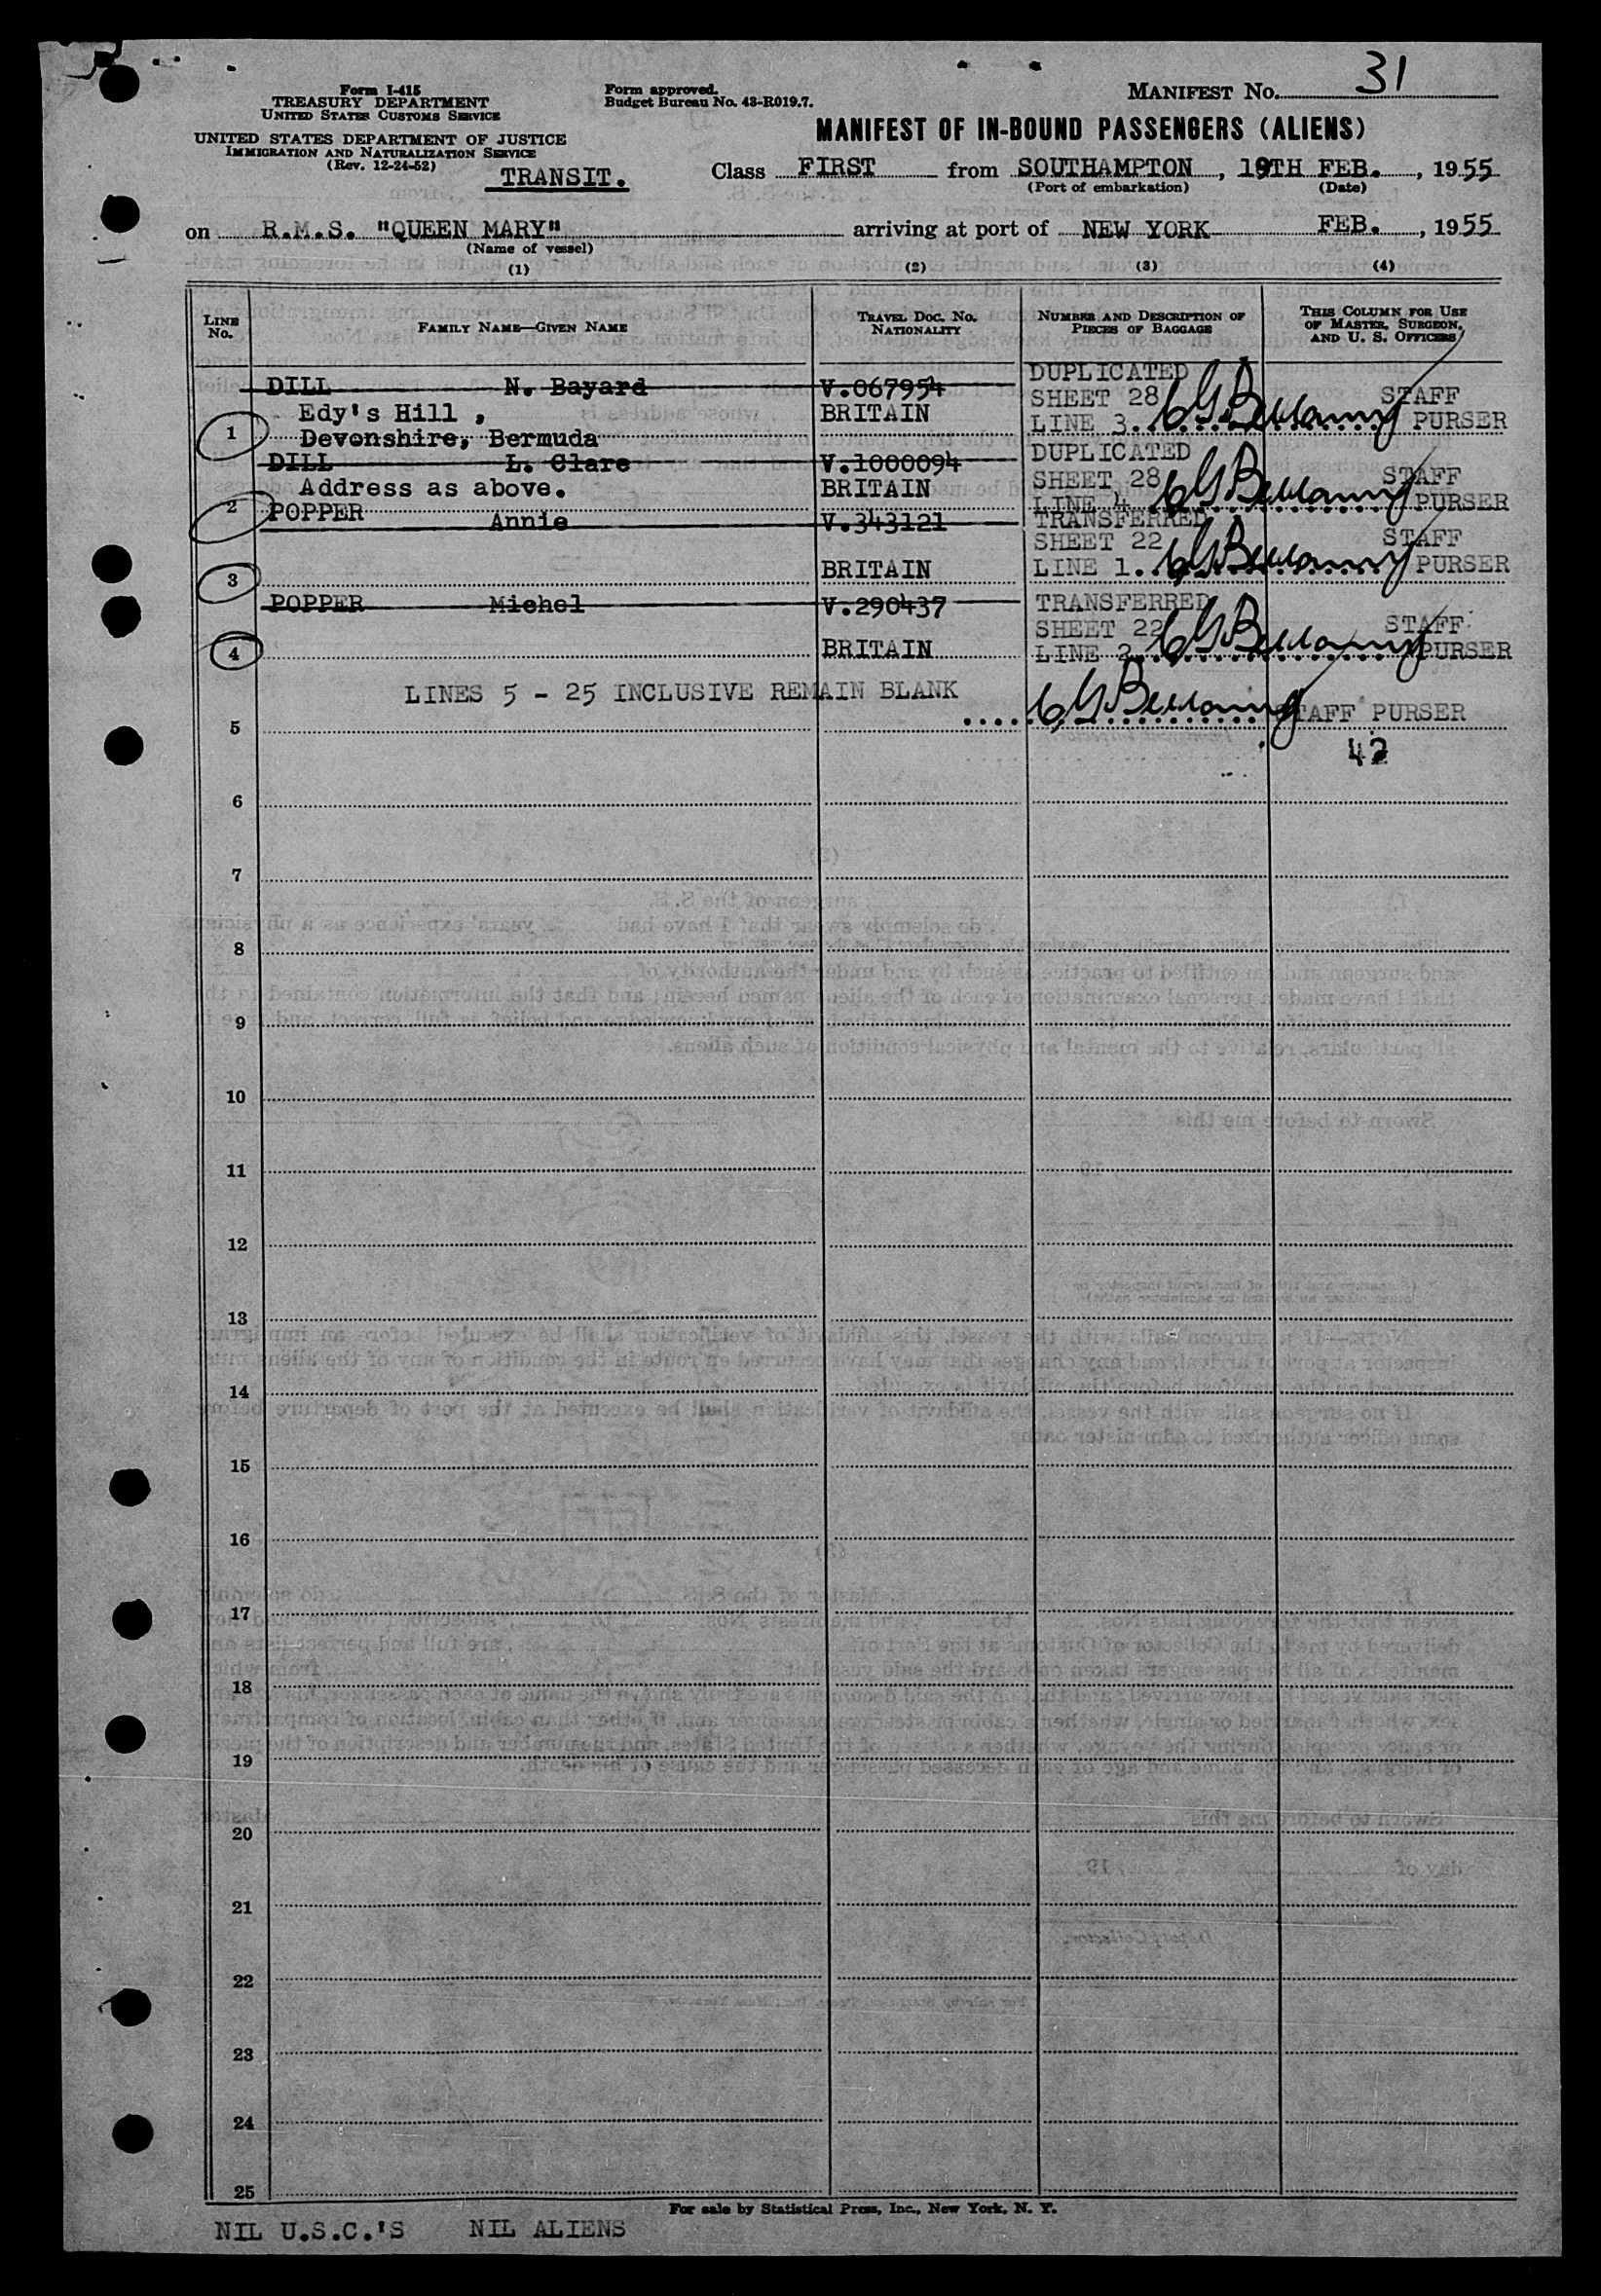 Form I-415
TREASURY DEPARTMENT
UNITED STATES CUSTOMS SERVICE
UNITED STATES DEPARTMENT OF JUSTICE
IMMIGRATION AND NATURALIZATION SERVICE
(Rev. 12-24-52)
TRANSIT.
Form approved.
Budget Bureau No. 43-R019.7.
MANIFEST No. 31
MANIFEST OF IN-BOUND PASSENGERS (ALIENS)
Class FIRST from SOUTHAMPTON, 19TH FEB., 1955
(Port of embarkation) (Date)
on R.M.S. "QUEEN MARY" arriving at port of NEW YORK FEB., 1955
(Name of vessel)
(1) (2) (3) (4)
LINE No. FAMILY NAME—GIVEN NAME TRAVEL DOC. No. NATIONALITY NUMBER AND DESCRIPTION OF PIECES OF BAGGAGE THIS COLUMN FOR USE OF MASTER, SURGEON, AND U. S. OFFICERS
DILL N. Bayard V.067954 DUPLICATED
Edy's Hill , BRITAIN SHEET 28 STAFF
1 Devonshire, Bermuda LINE 3. PURSER
DILL L. Clare V.1000094 DUPLICATED
Address as above. BRITAIN SHEET 28 STAFF
2 LINE 4 PURSER
POPPER Annie V.343121 TRANSFERRED
SHEET 22 STAFF
3 BRITAIN LINE 1. PURSER
POPPER Michel V.290437 TRANSFERRED
SHEET 22 STAFF
4 BRITAIN LINE 2 PURSER
LINES 5 - 25 INCLUSIVE REMAIN BLANK
5 STAFF PURSER
42
6
7
8
9
10
11
12
13
14
15
16
17
18
19
20
21
22
23
24
25
For sale by Statistical Press, Inc., New York, N. Y.
NIL U.S.C.'S NIL ALIENS